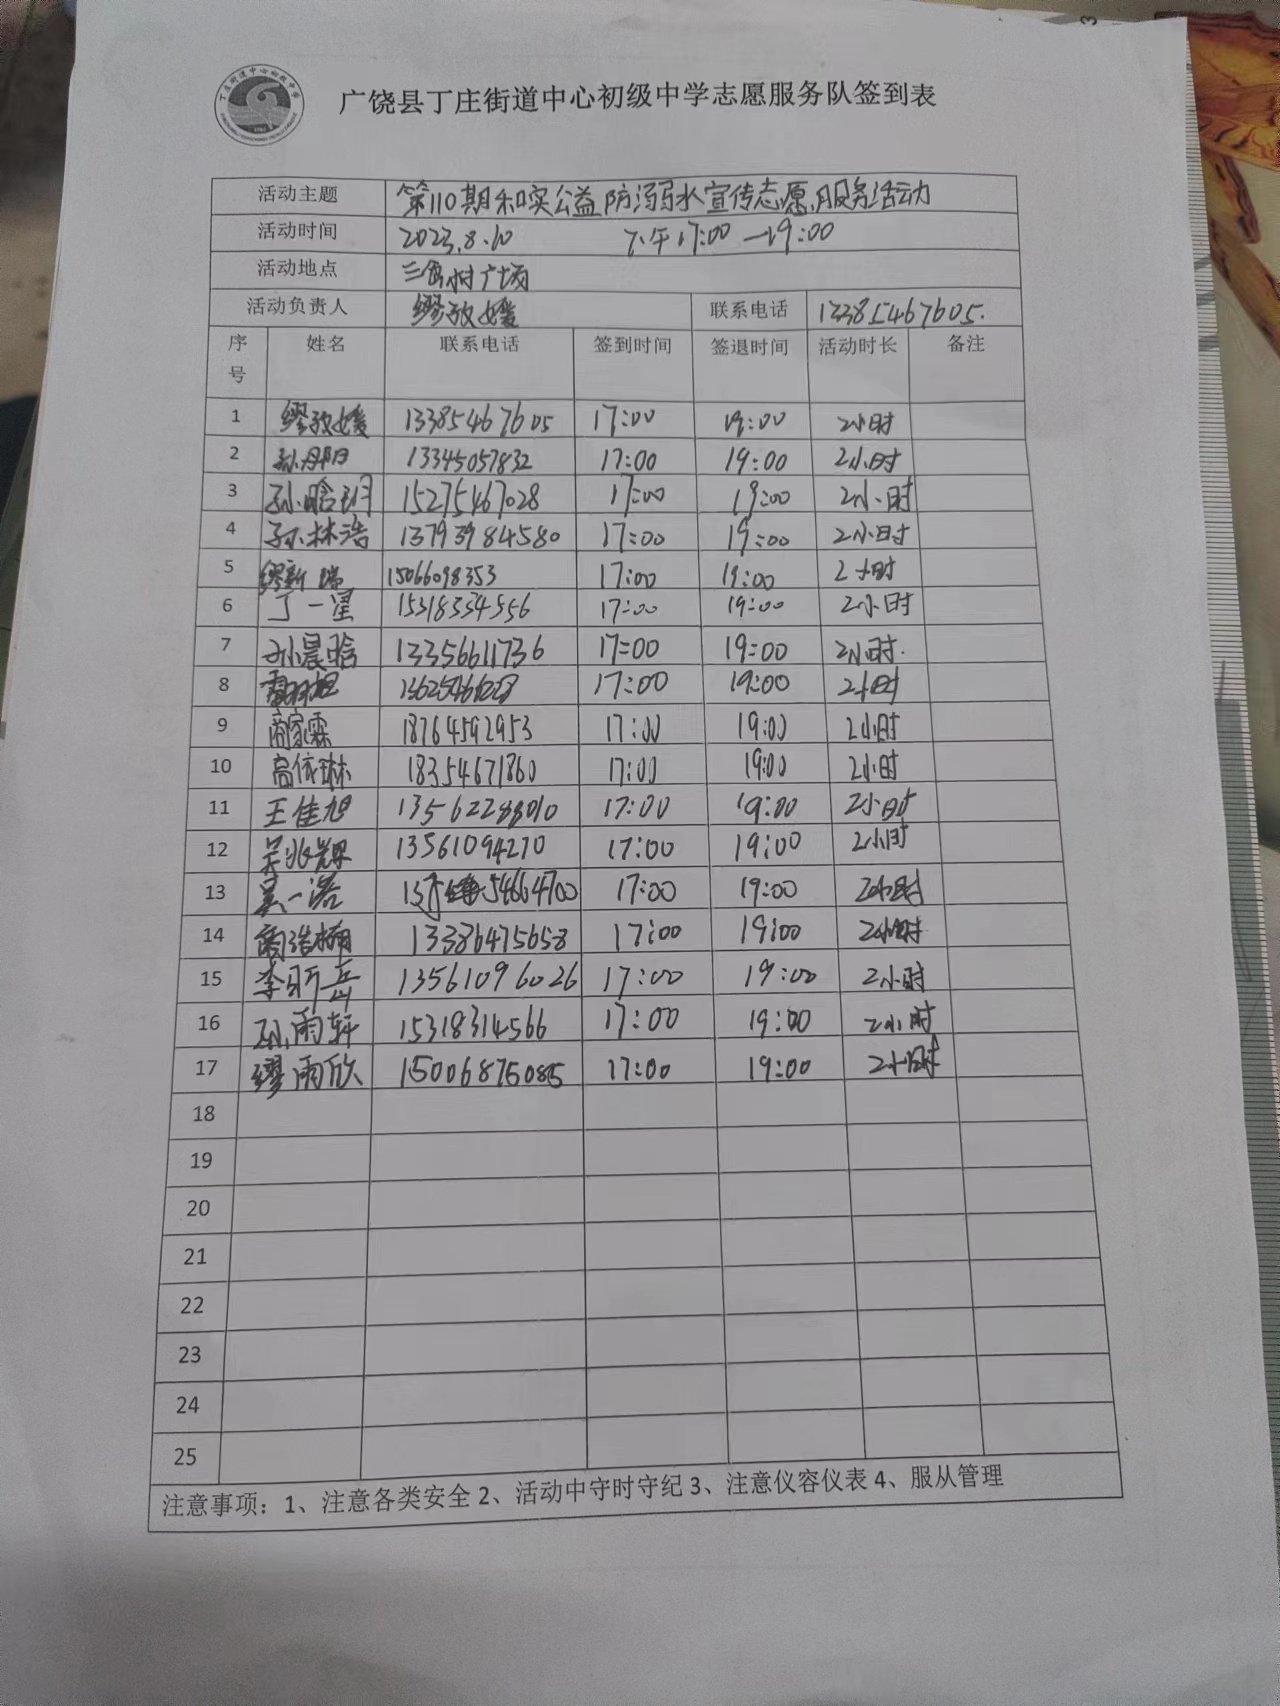 广饶县丁庄街道中心初级中学志愿服务队签到表
活动主题 第110期和实公益防溺水宣传志愿服务活动
活动时间 2023.8.10 下午17:00—19:00
活动地点 三 村广场
活动负责人 缪 媛 联系电话 13385467605.
序号 姓名 联系电话 签到时间 签退时间 活动时长 备注
1 缪 媛 13385467605 17:00 19:00 2小时
2 孙丹阳 13345057832 17:00 19:00 2小时
3 孙晗玥 15275467028 17:00 19:00 2小时
4 孙林浩 13793984580 17:00 19:00 2小时
5 缪新瑞 15066098353 17:00 19:00 2小时
6 丁一星 15318334556 17:00 19:00 2小时
7 孙晨晗 13356611736 17:00 19:00 2小时.
8 17:00 19:00 2小时
9 商家霖 18764592953 17:00 19:00 2小时
10 高依琳 18354671860 17:00 19:00 2小时
11 王佳旭 13562288010 17:00 19:00 2小时
12 吴兆辉 13561094270 17:00 19:00 2小时
13 吴一诺 17:00 19:00 2小时
14 浩楠 13386475658 17:00 19:00 2小时
15 李昕岳 13561096026 17:00 19:00 2小时
16 孙雨轩 15318314566 17:00 19:00 2小时
17 缪雨欣 15006875085 17:00 19:00 2小时
18
19
20
21
22
23
24
25
注意事项：1、注意各类安全 2、活动中守时守纪 3、注意仪容仪表 4、服从管理